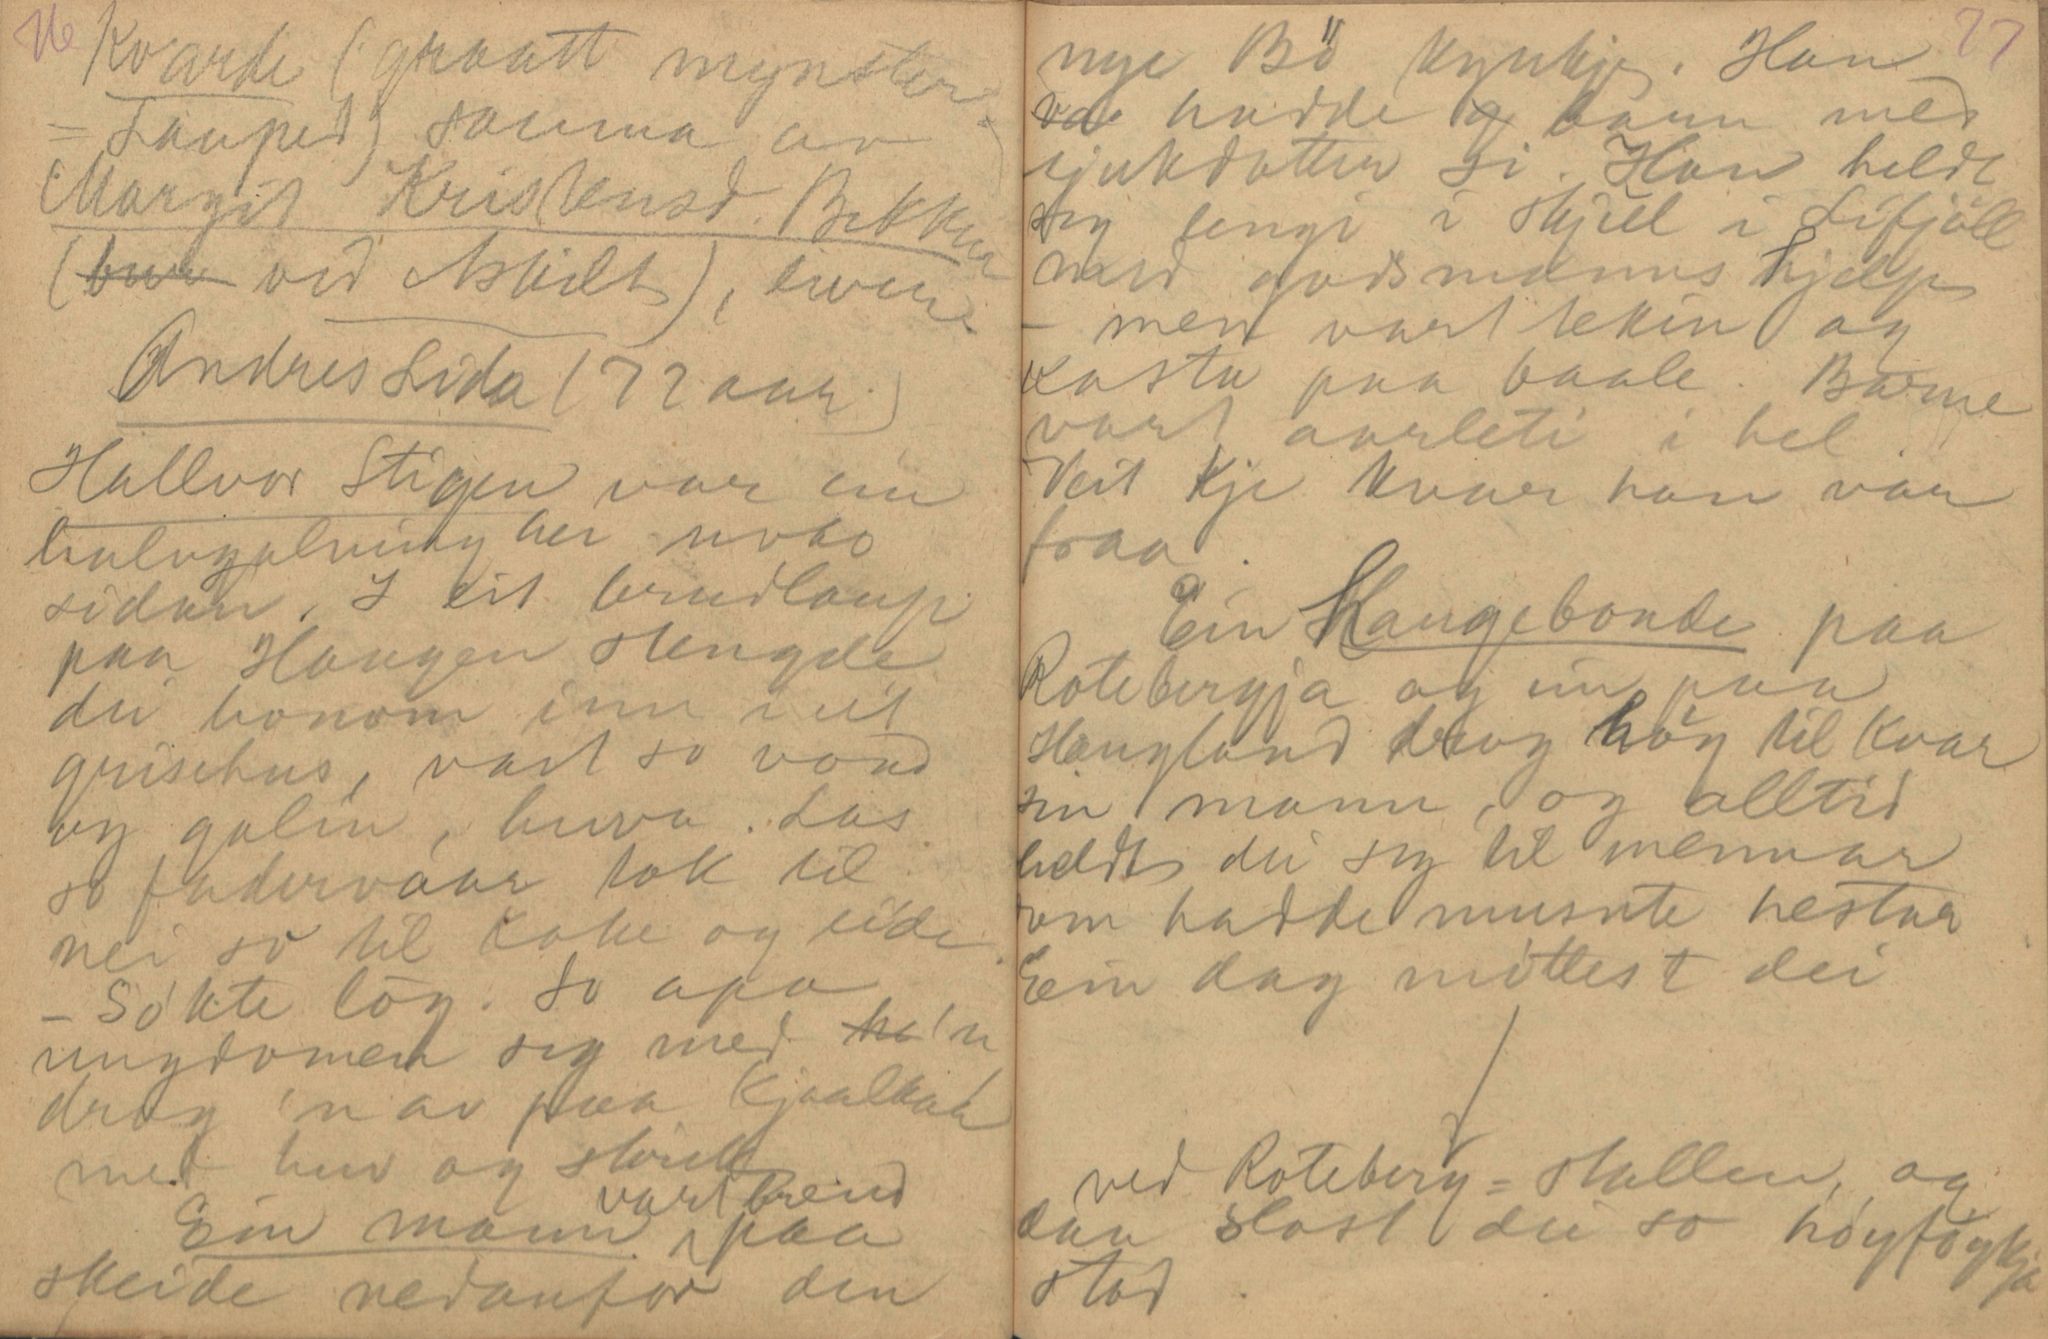 76
Kvarde (graatt mynster
= Lauped) sauma av
Margit Kristensd. Bekkun
(bur ved Askilt),
Andres Lida (72 aar)
Hallvor Stigen var ein
halvgalning her noko
sidan. I eit brudlaup
paa Haugen stengde
dei honom inn i eit
grisehus, vart so vond
og galin, huva. Las
so fadervaar tok til
nei so til koke og eide.
- Sökte lög. So apa
ungdomen seg med ha 'n
drog 'n av paa kjaalkar
med huv og skrik
Ein mann vart brend paa
skeide nedanfor den
77
nye Bö kyrkje. Han
va hadde eg barn med
sjukdotter si. Han heldt
seg lengi i skjul i Lifjöll
med godsmanns hjelp
- men vart tekin og
kasta paa baale. Barne
vart aarleti i hel.
Veit kje kvar han var
fraa.
Ein Haugebonde paa
Rotebergja og ein paa
Haugland drog höy til kvar
sin mann, og alltid
heldt dei seg til mennar
som hadde musute hestar
Ein dag möttest dei
ved Roteberg = stallen, og
daa slost dei so höyföykja
stod.